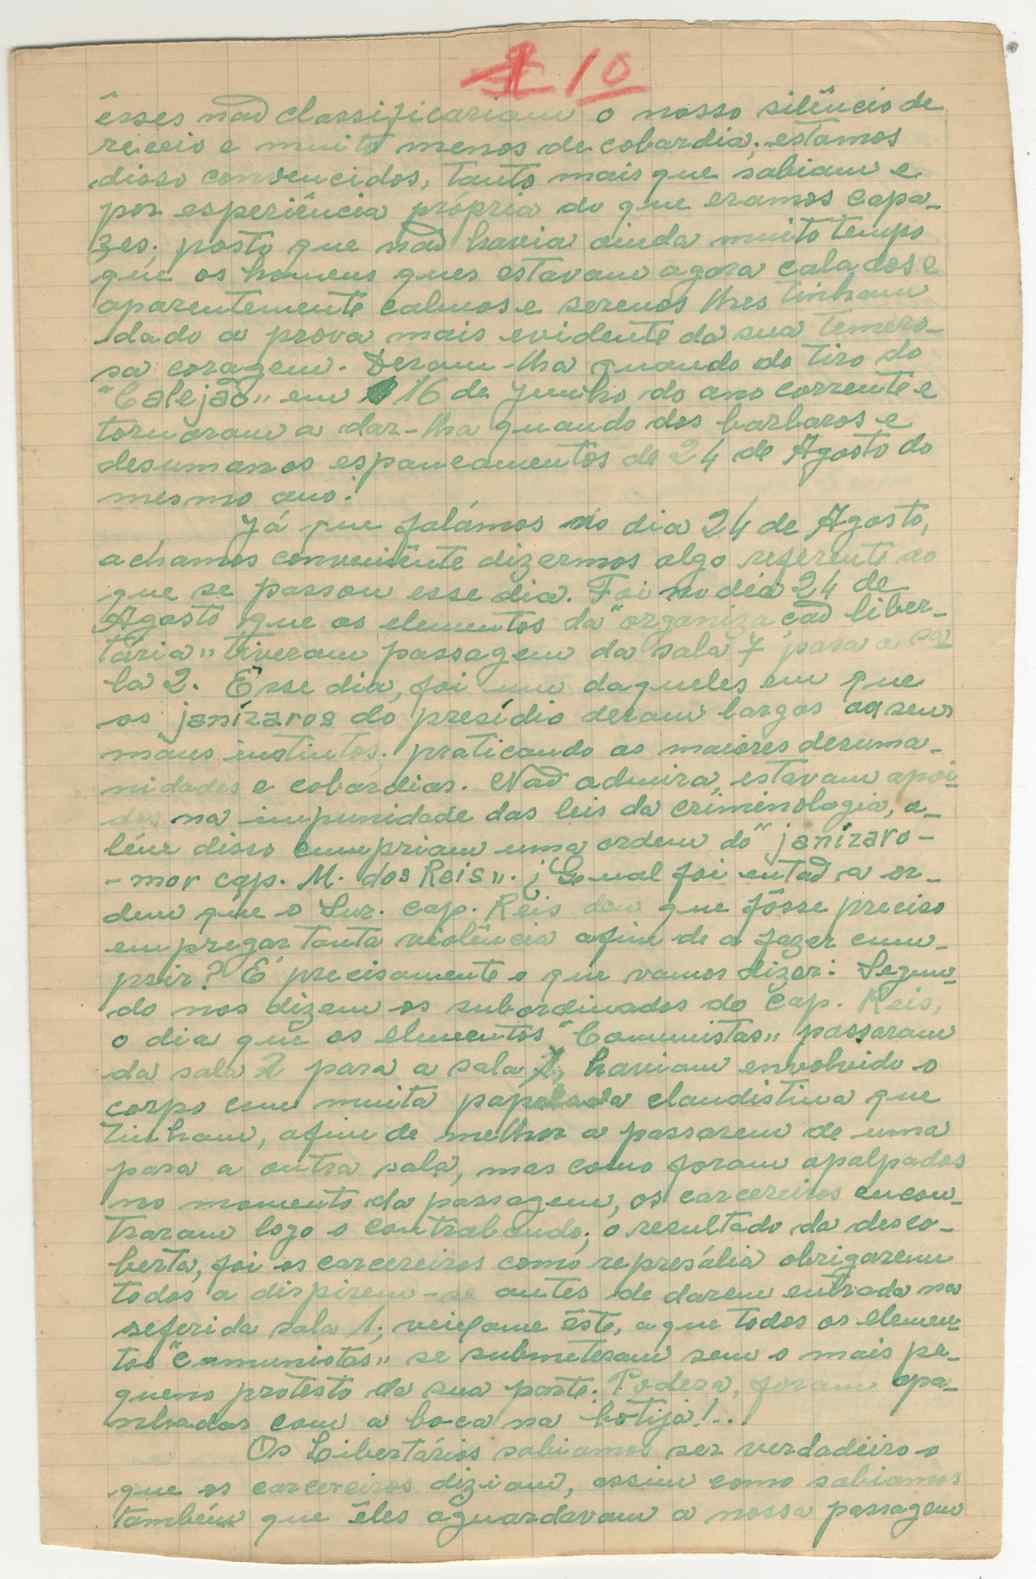 10
êsses não classificariam o nosso silêncio de
receio e muito menos de cobardia; estamos
disso convencidos, tanto mais que sabiam e
por esperiência própria do que eramos capa-
zes; posto que não havia ainda muito tempo
que os homens ques estavam agora calados e
aparentemente calmos e serenos lhes tinham
dado a prova mais evidente da sua temero-
sa coragem. Deram-lha quando do tiro do
"Calejão" em 16 de Junho do ano corrente e
tornaram a dar-lha quando dos barbaros e
desumanos espancamentos de 24 de Agosto do
mesmo ano!
Já que falámos do dia 24 de Agosto,
achamos conveniênte dizermos algo referente ao
que se passou esse dia. Foi no dia 24 de
Agosto que os elementos da "organização liber-
tária" tiveram passagem da sala 7 para a sa-
la 2. Êsse dia, foi um daqueles em que
os janízaros do presídio deram largos aos seus
máus instintos. praticando as maiores desuma-
nidades e cobardias. Não admira, estavam apoi-
dos na impunidade das leis da criminologia, a-
lém disso cumpriam uma ordem do "janízaro-
-mor cap. M. dos Reis". ¿Qual foi então a or-
dem que o Snr. cap. Reis deu que fôsse preciso
empregar tanta violência afim de a fazer cum-
prir? É precisamente o que vamos dizer: Segun-
do nos dizem os subordinados do cap. Reis,
o dia que os elementos "Comunistas" passaram
da sala 2 para a sala 1, haviam envolvido o
corpo com muita papelada clandistina que
tinham, afim de melhor a passarem de uma
para a outra sala, mas como foram apalpados
no momento da passagem, os carcereiros encon-
traram logo o contrabando; o resultado da desco-
berta, foi os carcereiros como represália obrigarem
todos a dispirem-se antes de darem entrada na
referida sala 1; vexame êste, a que todos os elemen-
tos "comunistas" se submeteram sem o mais pe-
queno protesto da sua parte. Podera, foram apa-
nhados com a boca na botija!..
Os Libertários sabiamos ser verdadeiro o
que os carcereiros diziam, assim como sabiamos
também que êles aguardavam a nossa passagem